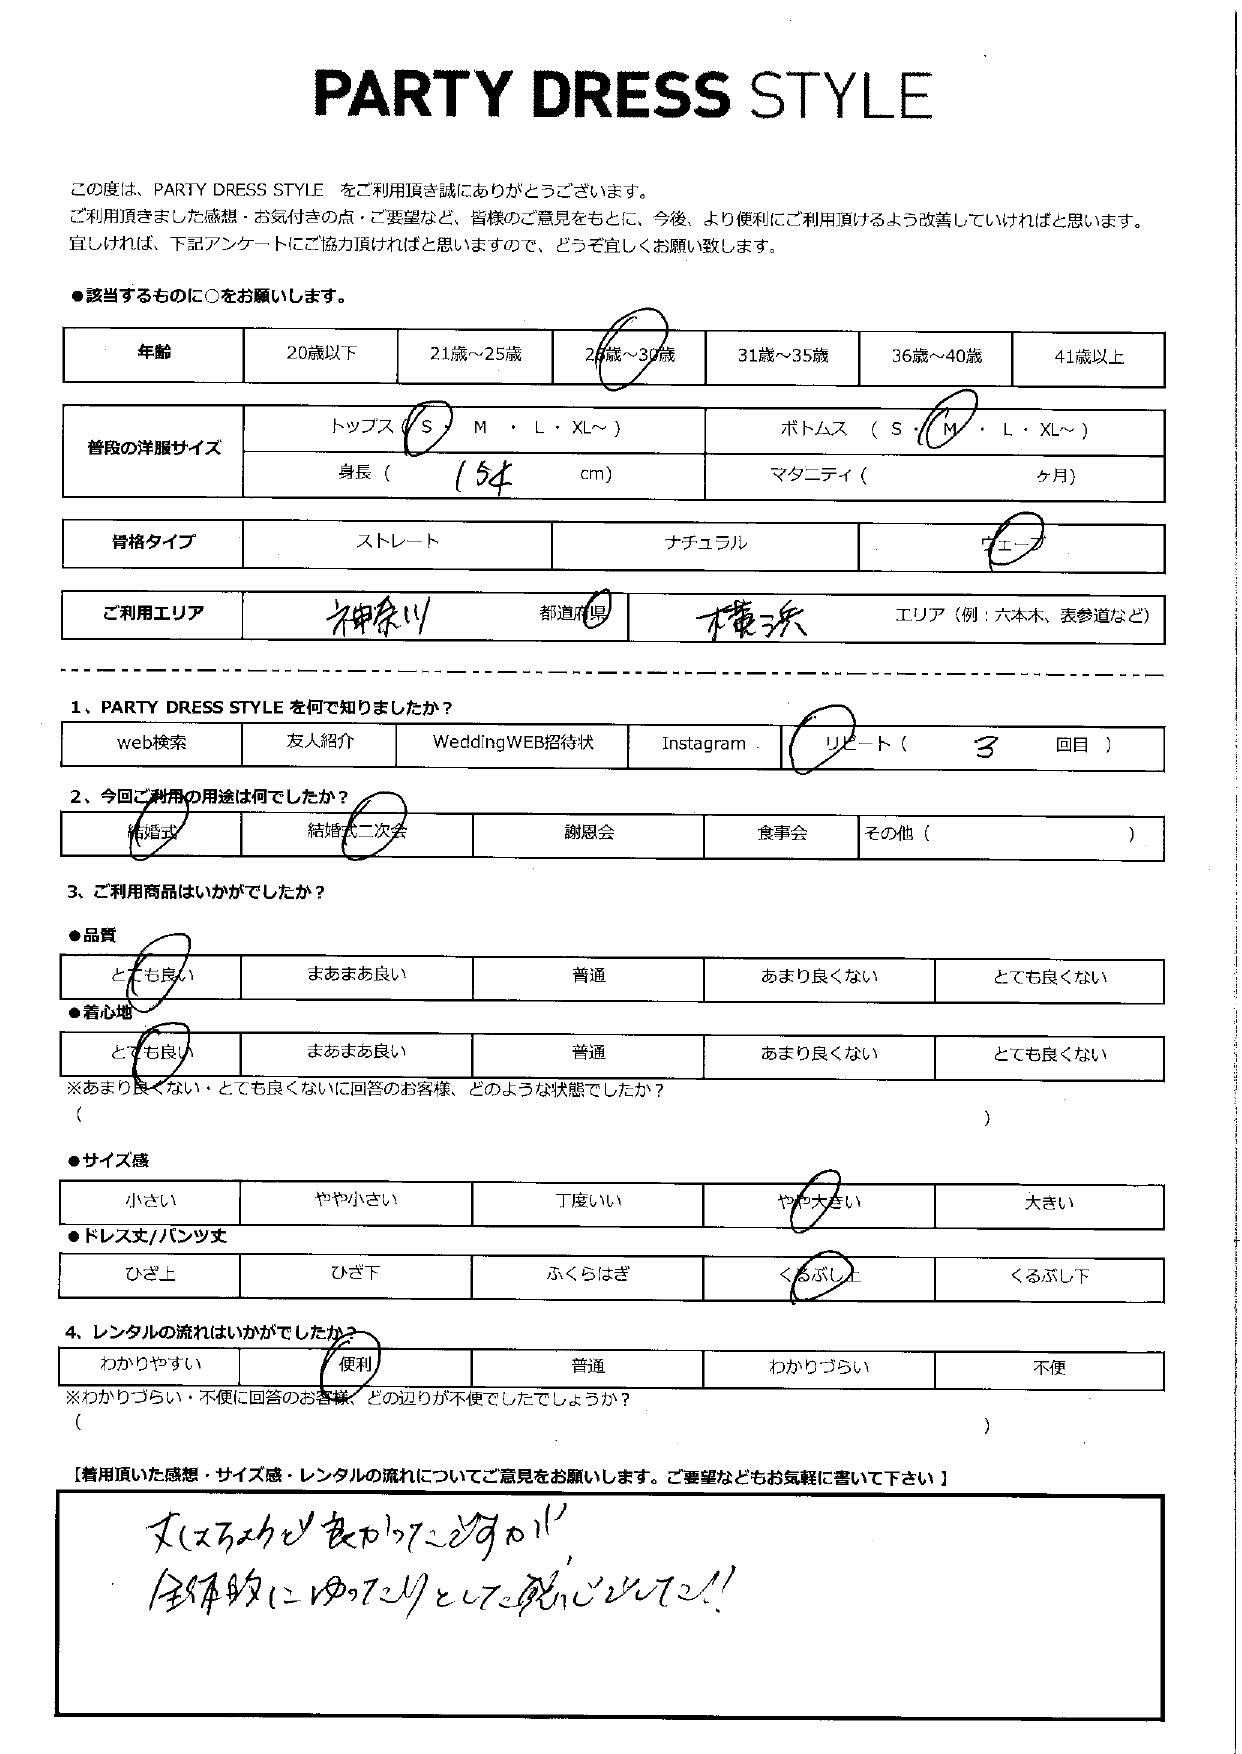 PARTY DRESS STYLE
この度は、PARTY DRESS STYLE をご利用頂き誠にありがとうございます。
ご利用頂きました感想・お気付きの点・ご要望など、皆様のご意見をもとに、今後、より便利にご利用頂けるよう改善していければと思います。
宜しければ、下記アンケートにご協力頂ければと思いますので、どうぞ宜しくお願い致します。
●該当するものに○をお願いします。
年齢 20歳以下 21歳～25歳 26歳～30歳 31歳～35歳 36歳～40歳 41歳以上
普段の洋服サイズ トップス（ S ・ M ・ L ・ XL～ ） ボトムス （ S ・ M ・ L ・ XL～ ）
身長（ 154 cm） マタニティ（ ヶ月）
骨格タイプ ストレート ナチュラル ウェーブ
ご利用エリア 神奈川 都道府県 横浜 エリア（例：六本木、表参道など）
1、PARTY DRESS STYLE を何で知りましたか？
web検索 友人紹介 WeddingWEB招待状 Instagram リピート（ 3 回目 ）
2、今回ご利用の用途は何でしたか？
結婚式 結婚式二次会 謝恩会 食事会 その他（ ）
3、ご利用商品はいかがでしたか？
●品質
とても良い まあまあ良い 普通 あまり良くない とても良くない
●着心地
とても良い まあまあ良い 普通 あまり良くない とても良くない
※あまり良くない・とても良くないに回答のお客様、どのような状態でしたか？
（ ）
●サイズ感
小さい やや小さい 丁度いい やや大きい 大きい
●ドレス丈/パンツ丈
ひざ上 ひざ下 ふくらはぎ くるぶし上 くるぶし下
4、レンタルの流れはいかがでしたか？
わかりやすい 便利 普通 わかりづらい 不便
※わかりづらい・不便に回答のお客様、どの辺りが不便でしたでしょうか？
（ ）
【着用頂いた感想・サイズ感・レンタルの流れについてご意見をお願いします。ご要望などもお気軽に書いて下さい 】
丈はちょうど良かったですが
全体的にゆったりとした感じでした!!